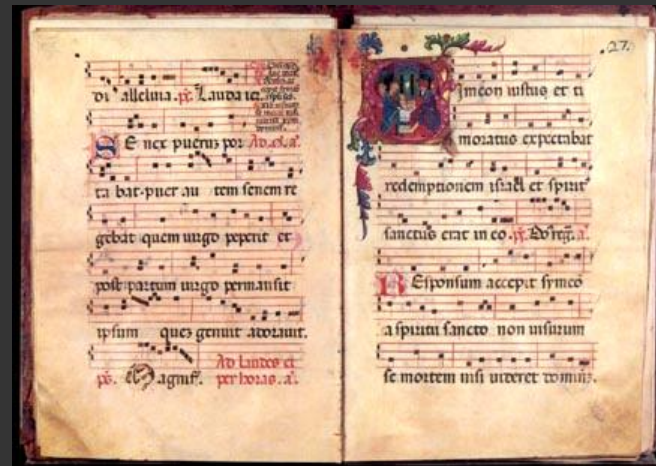 di alleluia. ps. Laudate.
SEnex pueruz por Ad. et. a.
ta bat puer au tem senem re
gebat quem uirgo peperit et
post partum uirgo permansit
ipsum quez genuit adorauit.
ps. Magnif. Ad Laudes et
per horas. a.
27.
Simeon iustus et ti
moratus expectabat
redemptionem israel et spirit
sanctus erat in eo. ps. a.
REsponsum accepit symeo
a spiritu sancto non uisurum
se mortem nisi uideret dominu.